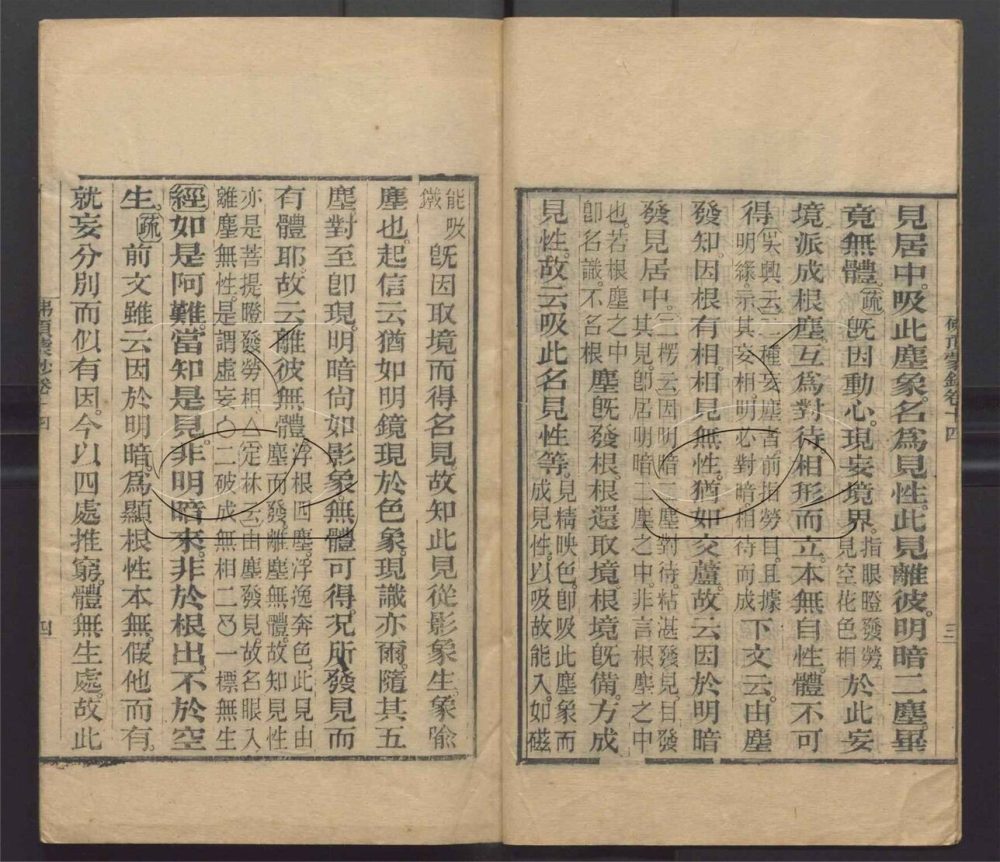 見居中。吸此塵象。名為見性。此見離彼。明暗二塵。畢
竟無體。疏既因動心。現妄境界。指眼瞪發勞。見空花色相於此妄
境派成根塵。互為對待。相形而立。本無自性。體不可
得。吳興云。二種妄塵者。前指勞目。且據明緣。示其妄相。明必對暗。相待而成下文云。由塵
發知。因根有相。相見無性。猶如交蘆。故云因於明暗
發見居中。二楞云。因明暗二塵。對待粘湛發見。目發其見。即居明暗二塵之中。非言根塵之中
也。若根塵之中即名識。不名根塵既發根。根還取境。根境既備。方成
見性。故云吸此名見性等。見精映色。即吸此塵象而成見性。以吸故能入。如磁
能吸鐵既因取境而得名見。故知此見從影象生。象喻
塵也。起信云。猶如明鏡現於色象。現識亦爾。隨其五
塵對至即現。明暗尚如影象。無體可得。況所發見而
有體耶。故云離彼無體。浮根四塵。浮逸奔色。此見由塵而發。離塵無體。故知見性
亦是菩提瞪發勞相。△定林云。由塵發見。故名眼入離塵無性。是謂虛妄。○二破成無相二。一標無生
經如是阿難。當知是見。非明暗來。非於根出。不於空
生。疏前文雖云因於明暗。為顯根性本無。假他而有。
就妄分別而似有因。今以四處推窮。體無生處。故此
三
四